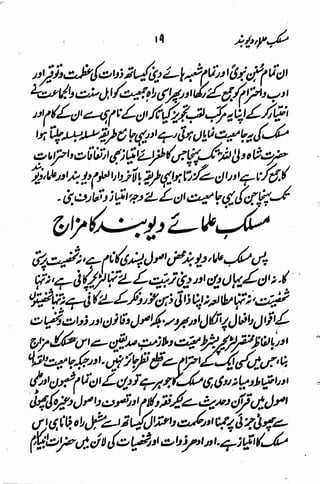 مسلک علماء دیوبند ۱۹
ان تمام سنن نبوی اور تمام شعبہ ہائے دینی کیساتھ ذوات کی عظمت و توقیر اور
ادب و احترام کو جمع کئے رکھا اور پھر اسی راہ جمعیت کو اہل سنت والجماعت نے
اختیار کر کے اپنا یہ مرکب لقب تجویز کیا تاکہ ان کے نام ہی سے ان کے کام اور
مسلک کی یہ جامعیت نمایاں ہوتی رہے اور یہی جامع طریقہ سلسلہ بسلسلہ چلتا ہوا
حضرت شاہ ولی اللہ تک پہنچا جس کا طغرائے امتیاز ہی ارتفاقات و احترامات
کا جمع کرنا ہے اور ان سے گزرتا ہوا یہی طریقہ بالآخر دارالعلوم دیوبند اور علماء دیوبند
تک پہنچا جن کی یہی جامعیت ان کے لئے وجہ امتیاز و تعارف بنی۔
مسلک علمائے دیوبند کا مزاج
پس مسلک علماء دیوبند محض اصول پسندی کا نام ہے، نہ شخصیت پرستی
کا۔ نہ ان کے یہاں دین اور دینی تربیت کے لئے تنہا لٹریچر کافی ہے، نہ تنہا
شخصیت، نہ تنہا مطالعہ نہ اپنا ذاتی ذہن غور و فکر کے لئے کافی ہے نہ تنہا شخصیتوں
کے اقوال و افعال پر اتکال اور بھروسہ، بلکہ اصول و قانون اور ذوات و شخصیات
اور بالفاظ مختصر لٹریچر بشرط معیت و ملازمت صدیقین سے اس مسلک کا مزاج
بنا، جس میں کسی ایک کے احترام سے قطع نظر جائز نہیں۔ اور جبکہ جامعیت و اعتدال
اور احتیاط و میانہ روی ہی مسلک کا جوہر ہے تو دین کے ان تمام شعبوں اور علمی
اصول میں قرآن و حدیث سے لیکر فقہ و کلام اور تصوف و اصول وغیرہ کی چھوٹی
سے چھوٹی جزئی پر جمنا اور حکمت و اعتدال کیساتھ اسے مشعل راہ بنانا ہی اس
مسلک کا امتیاز ہے۔ اور ادھر ذوات اور شخصیات کی لائن میں حضرات انبیاء